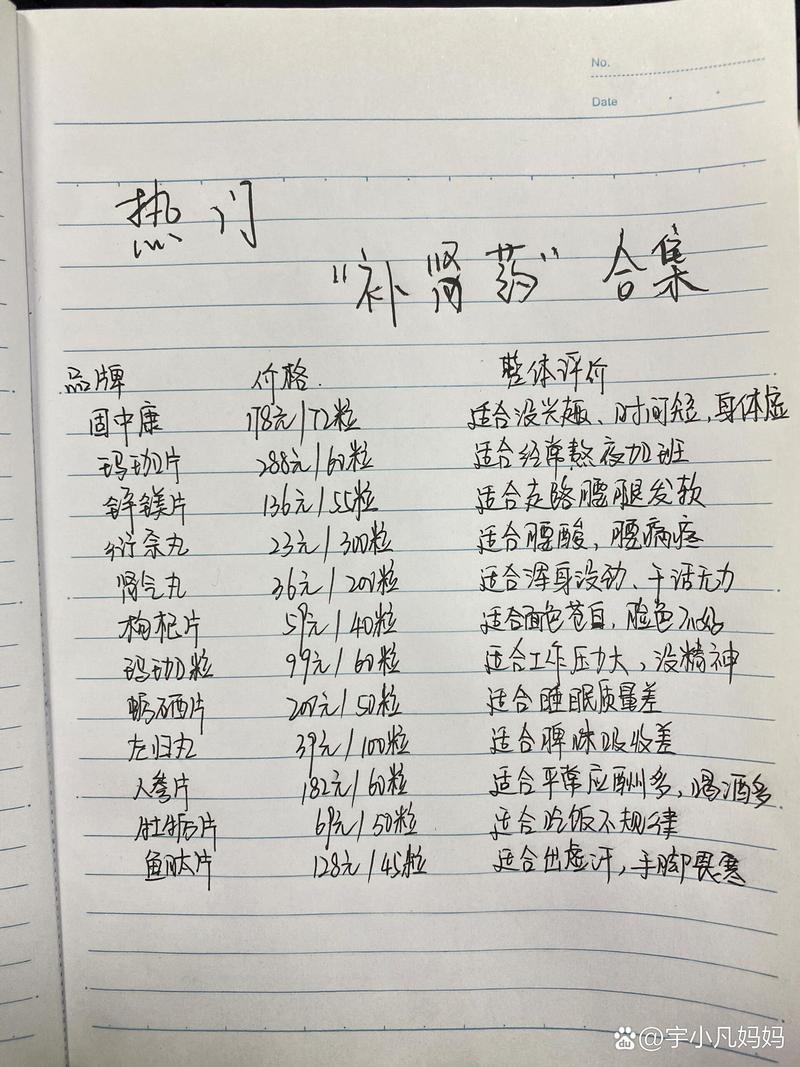 No.
Date
热门
"补肾药"合集
品牌 价格. 整体评价
固中康 178元/72粒 适合没兴趣、时间短,身体虚
玛珈片 288元/60粒 适合经常熬夜加班
锌镁片 136元/55粒 适合走路腰腿发软
衍杂丸 23元/300粒 适合腰酸,腰病疼
肾气丸 36元/200粒 适合浑身没劲、干活无力
枸杞片 59元/40粒 适合面色苍白,脸色不好
玛珈粒 99元/60粒 适合工作压力大、没精神
蛎硒片 200元/50粒 适合睡眠质量差
左归丸 39元/100粒 适合脾味吸收差
人参片 182元/60粒 适合平常应酬多,喝酒多
牡蛎片 69元/50粒 适合吃饭不规律
鱼肽片 128元/45粒 适合出虚汗,手脚畏寒
Baidu @宇小凡妈妈